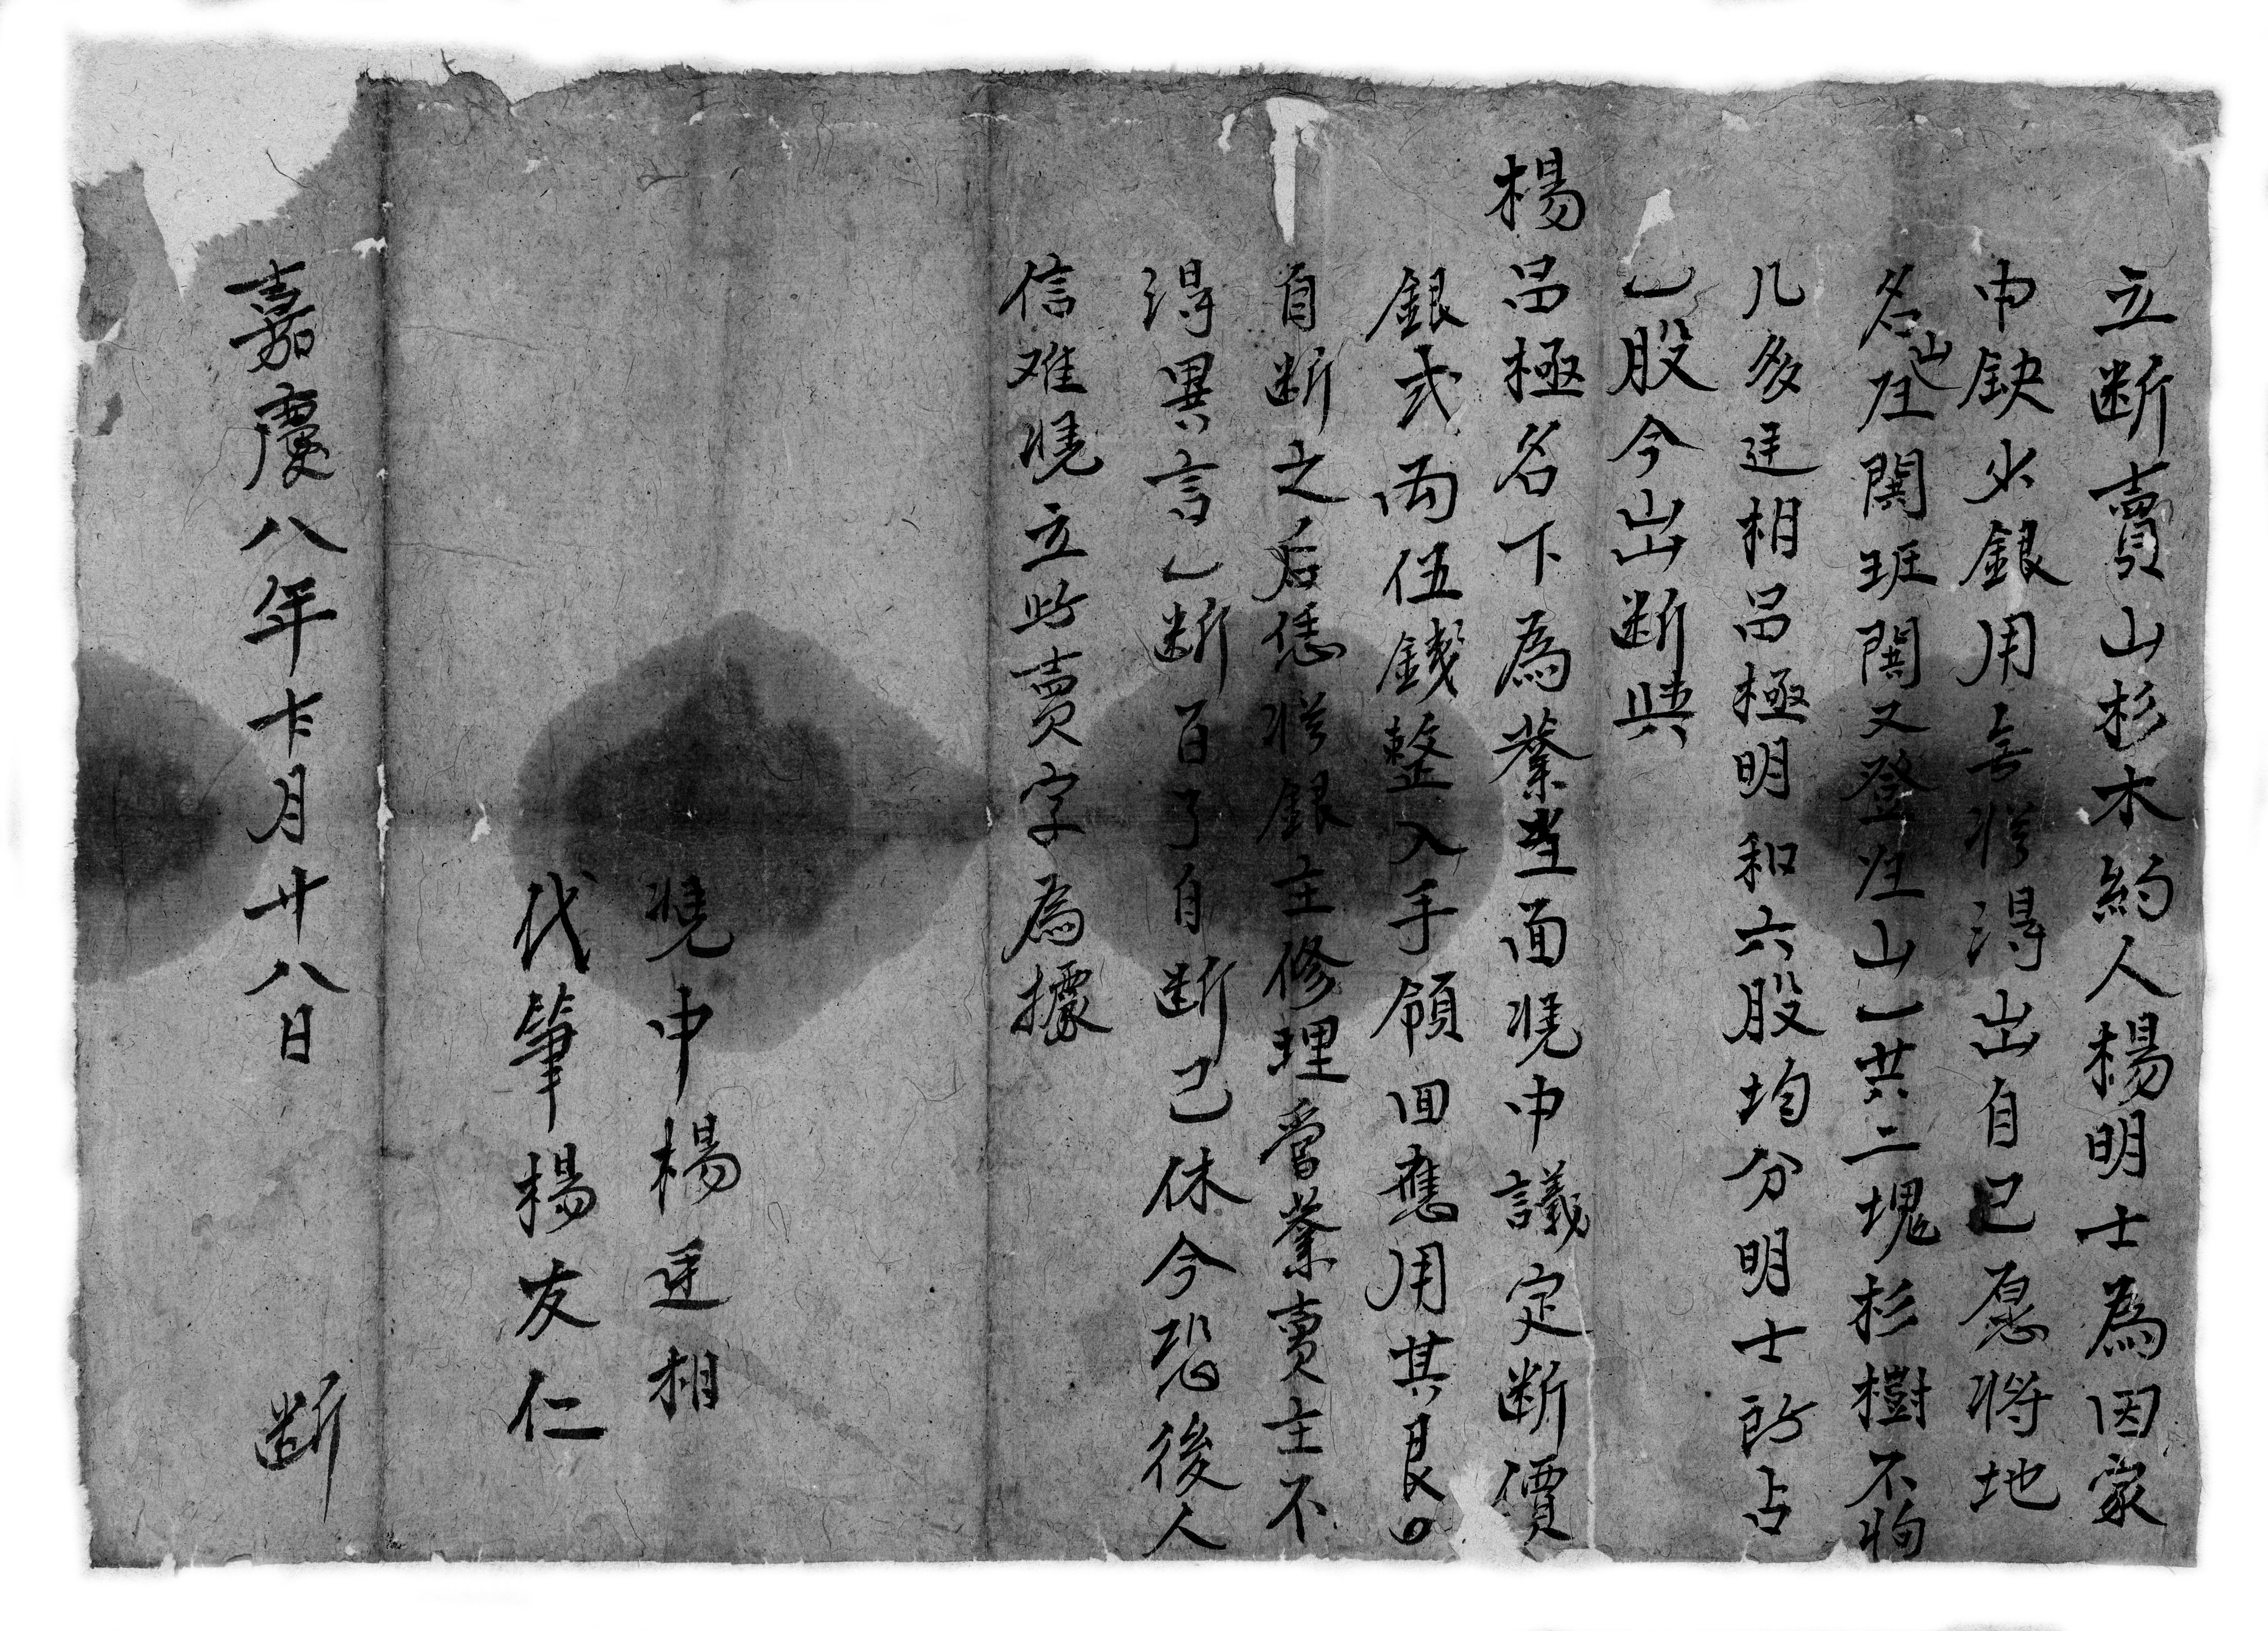 立断賣山杉木約人楊明士為因家
中缺少銀用無從得出自己愿将地
名山坐閗班閗又登坐山一共二塊杉樹不拘
几多廷相昌極明和六股均分明士所占
乙股今出断與
楊昌極名下為業当面凴中議定断價
銀弍両伍錢整入手領回應用其艮
自断之后恁從銀主修理管業賣主不
得異言一断百了自断己休今恐後人
信难凴立此賣字為據
凴中楊廷相
代筆楊友仁
嘉慶八年十月廿八日 断